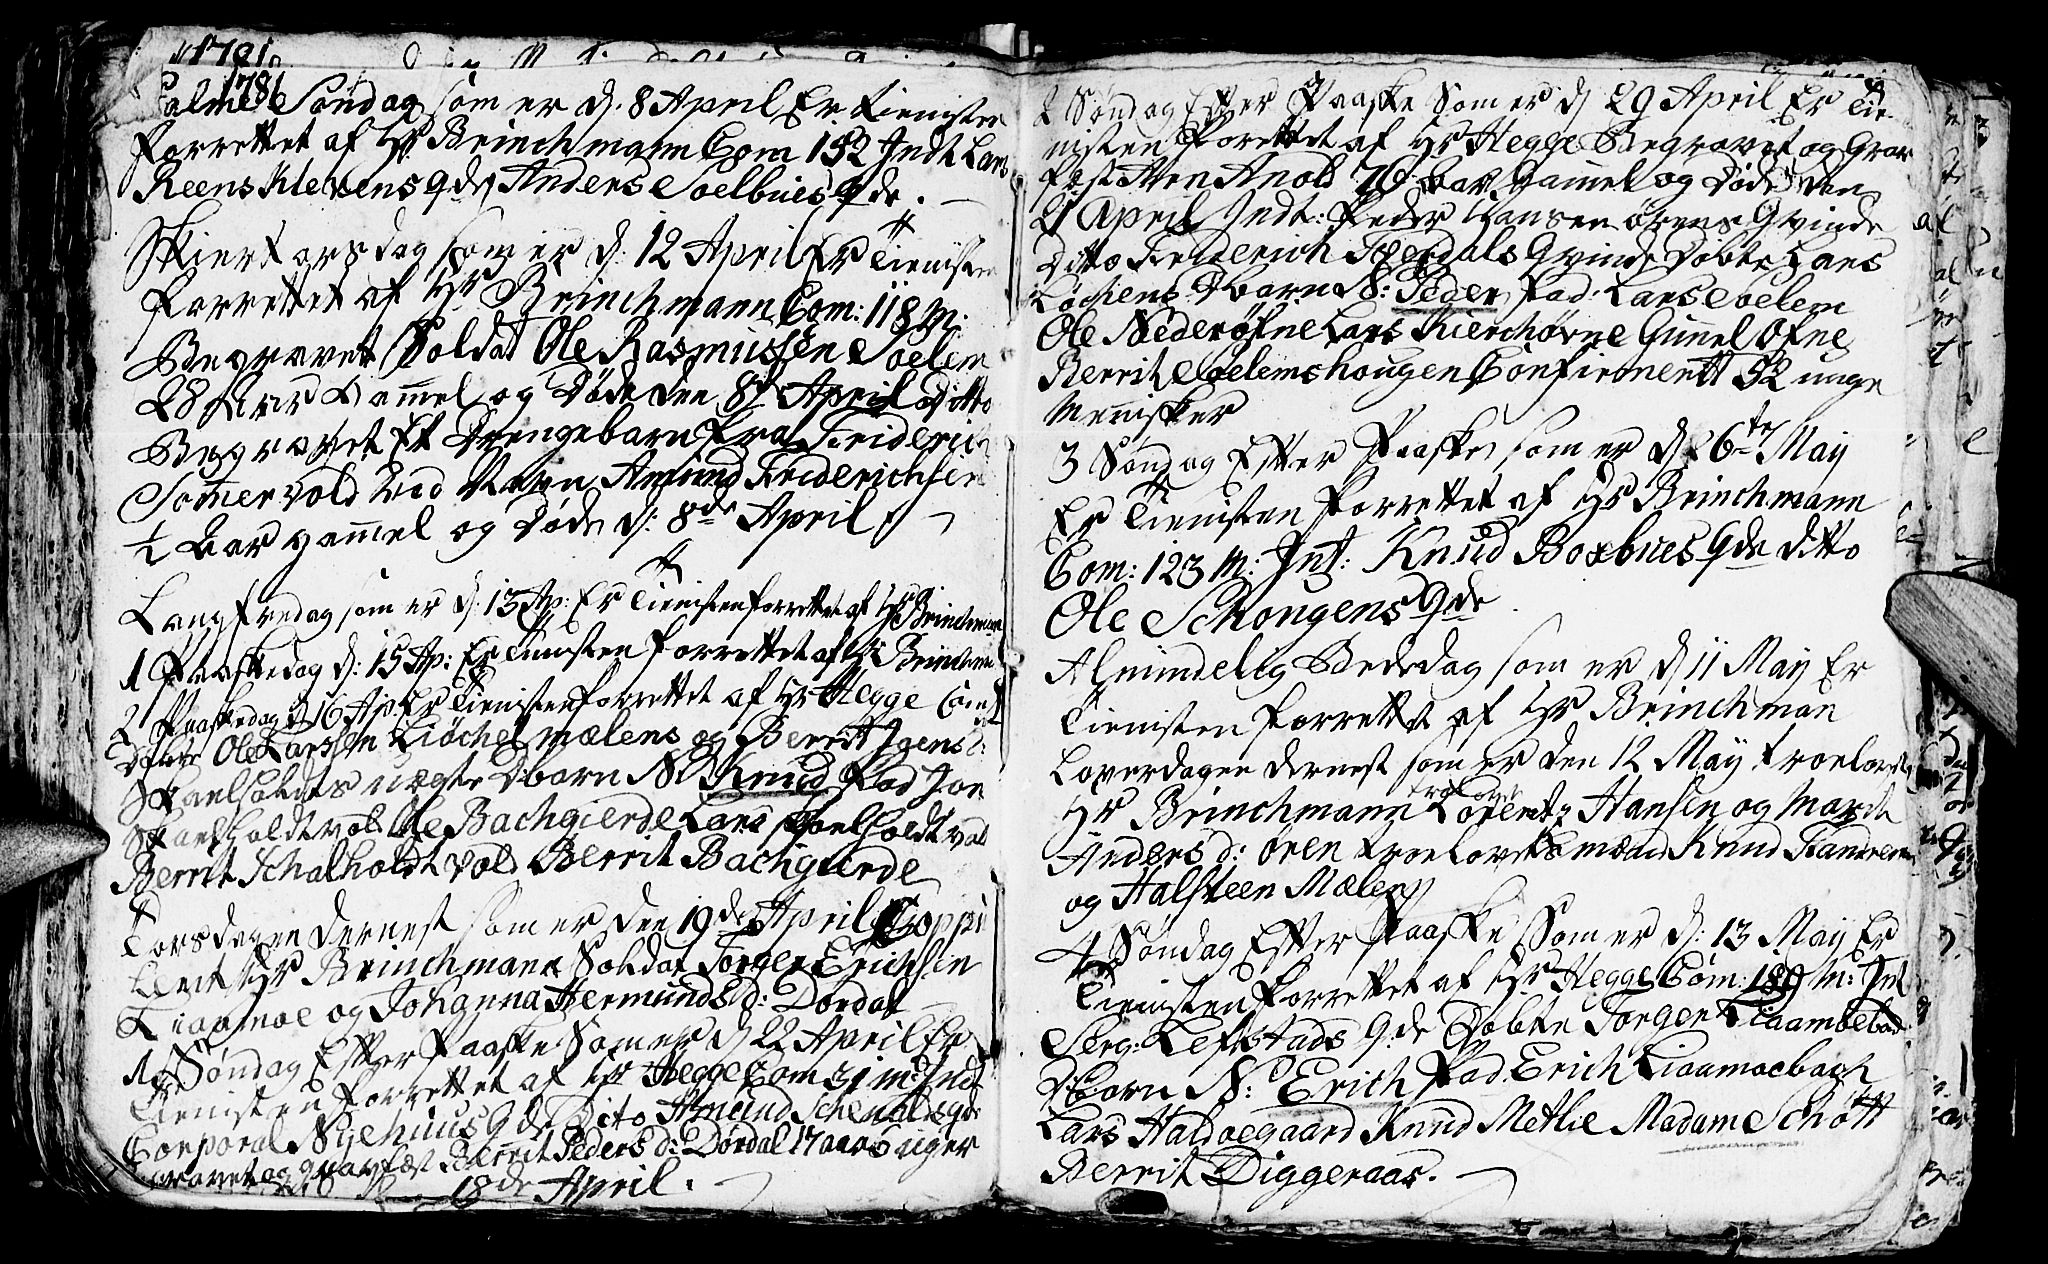 1781
1781
Palme Søndag som er d. 8 April Er Tienisten
forrettet af Hr Brinchmann Com 132 Indt Lars
Reens Klevens Qde Anders Soelbues Qde.
Skiertorsdag som er d: 12 April Er Tienisten
forrettet af Hr Brinchmann Com: 118 M.
Begravet Soldat Ole Rasmussen Soelem
28 Aar Gammel og Døde den 8de April Ditto
Begravet Et Drengebarn fra Friderich
Somervold ved Navn Amund Friderichsen
½ Aar gammel og Døde d: 8de April
Langfredag som er d: 13 Ap: Er Tienisten forrettet af Hr Brinchmann
1 Paaskedag d: 15 Ap: Er Tienisten forrettet af Hr Brinchmann
2 Paaskedag d 16 Ap: Er Tienisten forrettet af Hr Hegge
Døbte Ole Larssen Liøchel mælens og Berrit Jgens d:
Skaelholdts uægte Dbarn N: Knud Fad Jon
Skaelholdtvold Ole Bachgierde Lars Skaelholdtvold
Berrit Schalholdt vold Berrit Bachgierde
Torsdagen dernest som er den 19de April Coppu
leret Hr Brinchmann Soldat Torger Erichsen
Kiaamoe og Johanna Hermunds d: Dørdal
1 Søndag Efter Paaske Som er d 22 April Er
Tienisten forrettet af Hr Hegge Com 31 M: Indt
Corporal Nyehuus Qde Dito Amund Schenals qde
Begravet og gravfæst Berrit Peders d: Dørdal 17 aar uger
18de April.
2 Søndag Efter Paaske Som er d 29 April Er Tie-
nisten forettet af Hr Hegge Begravet og Grav
fæst Aren Anold 76 Aar Gamel og Døde den
21 April Indt: Peder Hansen ørens Qvinde
Ditto Friderich Isferdals Qvinde Døbte Lars
Løchens Dbarn N: Peder Fad: Lars Soelem
Ole Nederøfne Lars Kierchørne Gunel Øfne
Berrit Soelemshougen Confirmerett 52 unge
Mennisker
3 Søndag Efter Paaske som er d 6te May
Er Tienisten forrettet af Hr Brinchmann
Com: 123 M: Int: Knud Boxbues Qde ditto
Ole Schougens Qde
Almindelig Bededag som er d 11 May Er
Tienisten forrettet af Hr Brinchman
Løverdagen dernest som er den 12 May troelovet
Hr Brinchmann Lorentz Hansen og Marit
Anders d: Øren troelovelsmænd Knud
og Halsteen Mælen
4 Søndag Efter Paaske Som er d: 13 May Er
Tienisten forrettet af Hr Hegge Com: 189 M: Int
Serg: Lefstads Qde Døbte Torger Kiaamoebach
Dbarn N: Erich Fad. Erich Kiaamoebach
Lars Haldoegaard Knud Metlie Madam Schøtt
Berrit Diggeraas.